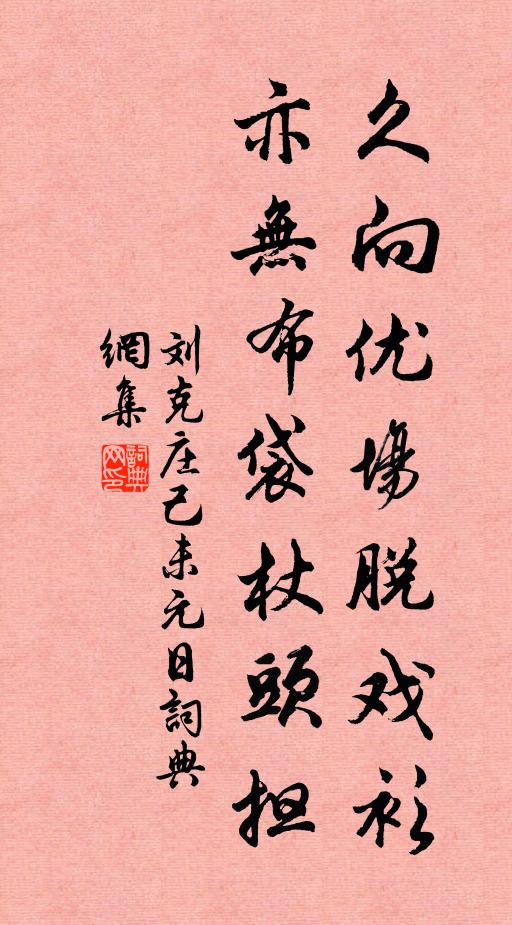 久向优場脱戏衫
亦無布袋杖頭担
刘克庄己未元日詞典
網集
詞典网印